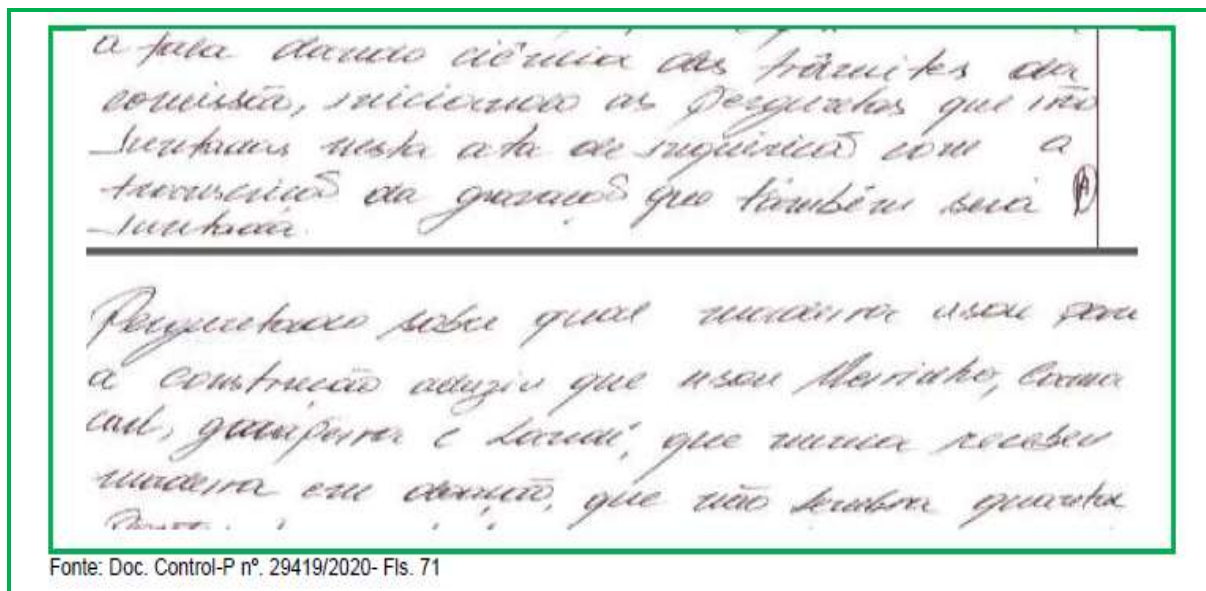 a fala dando ciência dos trâmites da
comissão, iniciando as perguntas que irão
juntadas nesta ata de inquirição com a
transcrição da gravação que também será
juntada.
Perguntado sobre qual madeira usou para
a construção aduziu que usou Meirinho, Cama
cari, guaipeira e Landi, que nunca recebeu
madeira em doação, que não lembra quanta
Fonte: Doc. Control-P nº. 29419/2020- Fls. 71